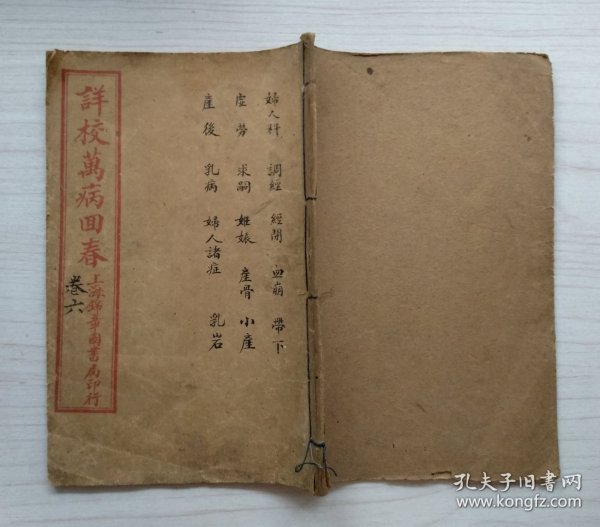 婦人科 調經 經閉 血崩 帶下
虚勞 求嗣 妊娠 產骨 小產
產後 乳病 婦人諸症 乳岩
詳校萬病回春
上海錦章圖書局印行
卷六
孔夫子旧书网
www.kongfz.com